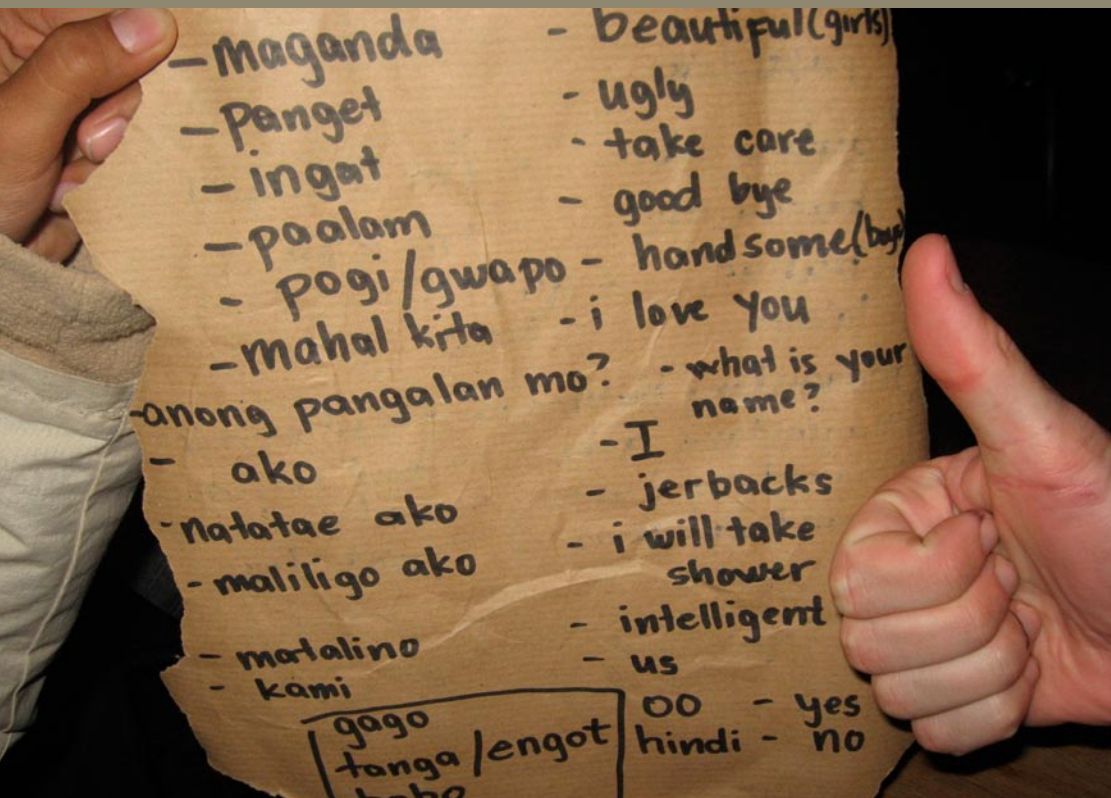 - maganda - beautiful(girls)
- panget - ugly
- ingat - take care
- paalam - good bye
- pogi/gwapo - handsome(boys)
- mahal kita - i love you
- anong pangalan mo? - what is your
name?
- ako - I
- natatae ako - jerbacks
- maliligo ako - i will take
shower
- matalino - intelligent
- kami - us
gago oo - yes
tanga/engot hindi - no
bobo